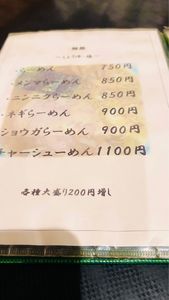 らーめん 750円
・メンマらーめん 850円
・ニンニクらーめん 850円
・ネギらーめん 900円
ショウガらーめん 900円
チャーシューめん 1100円
各種大盛り200円増し